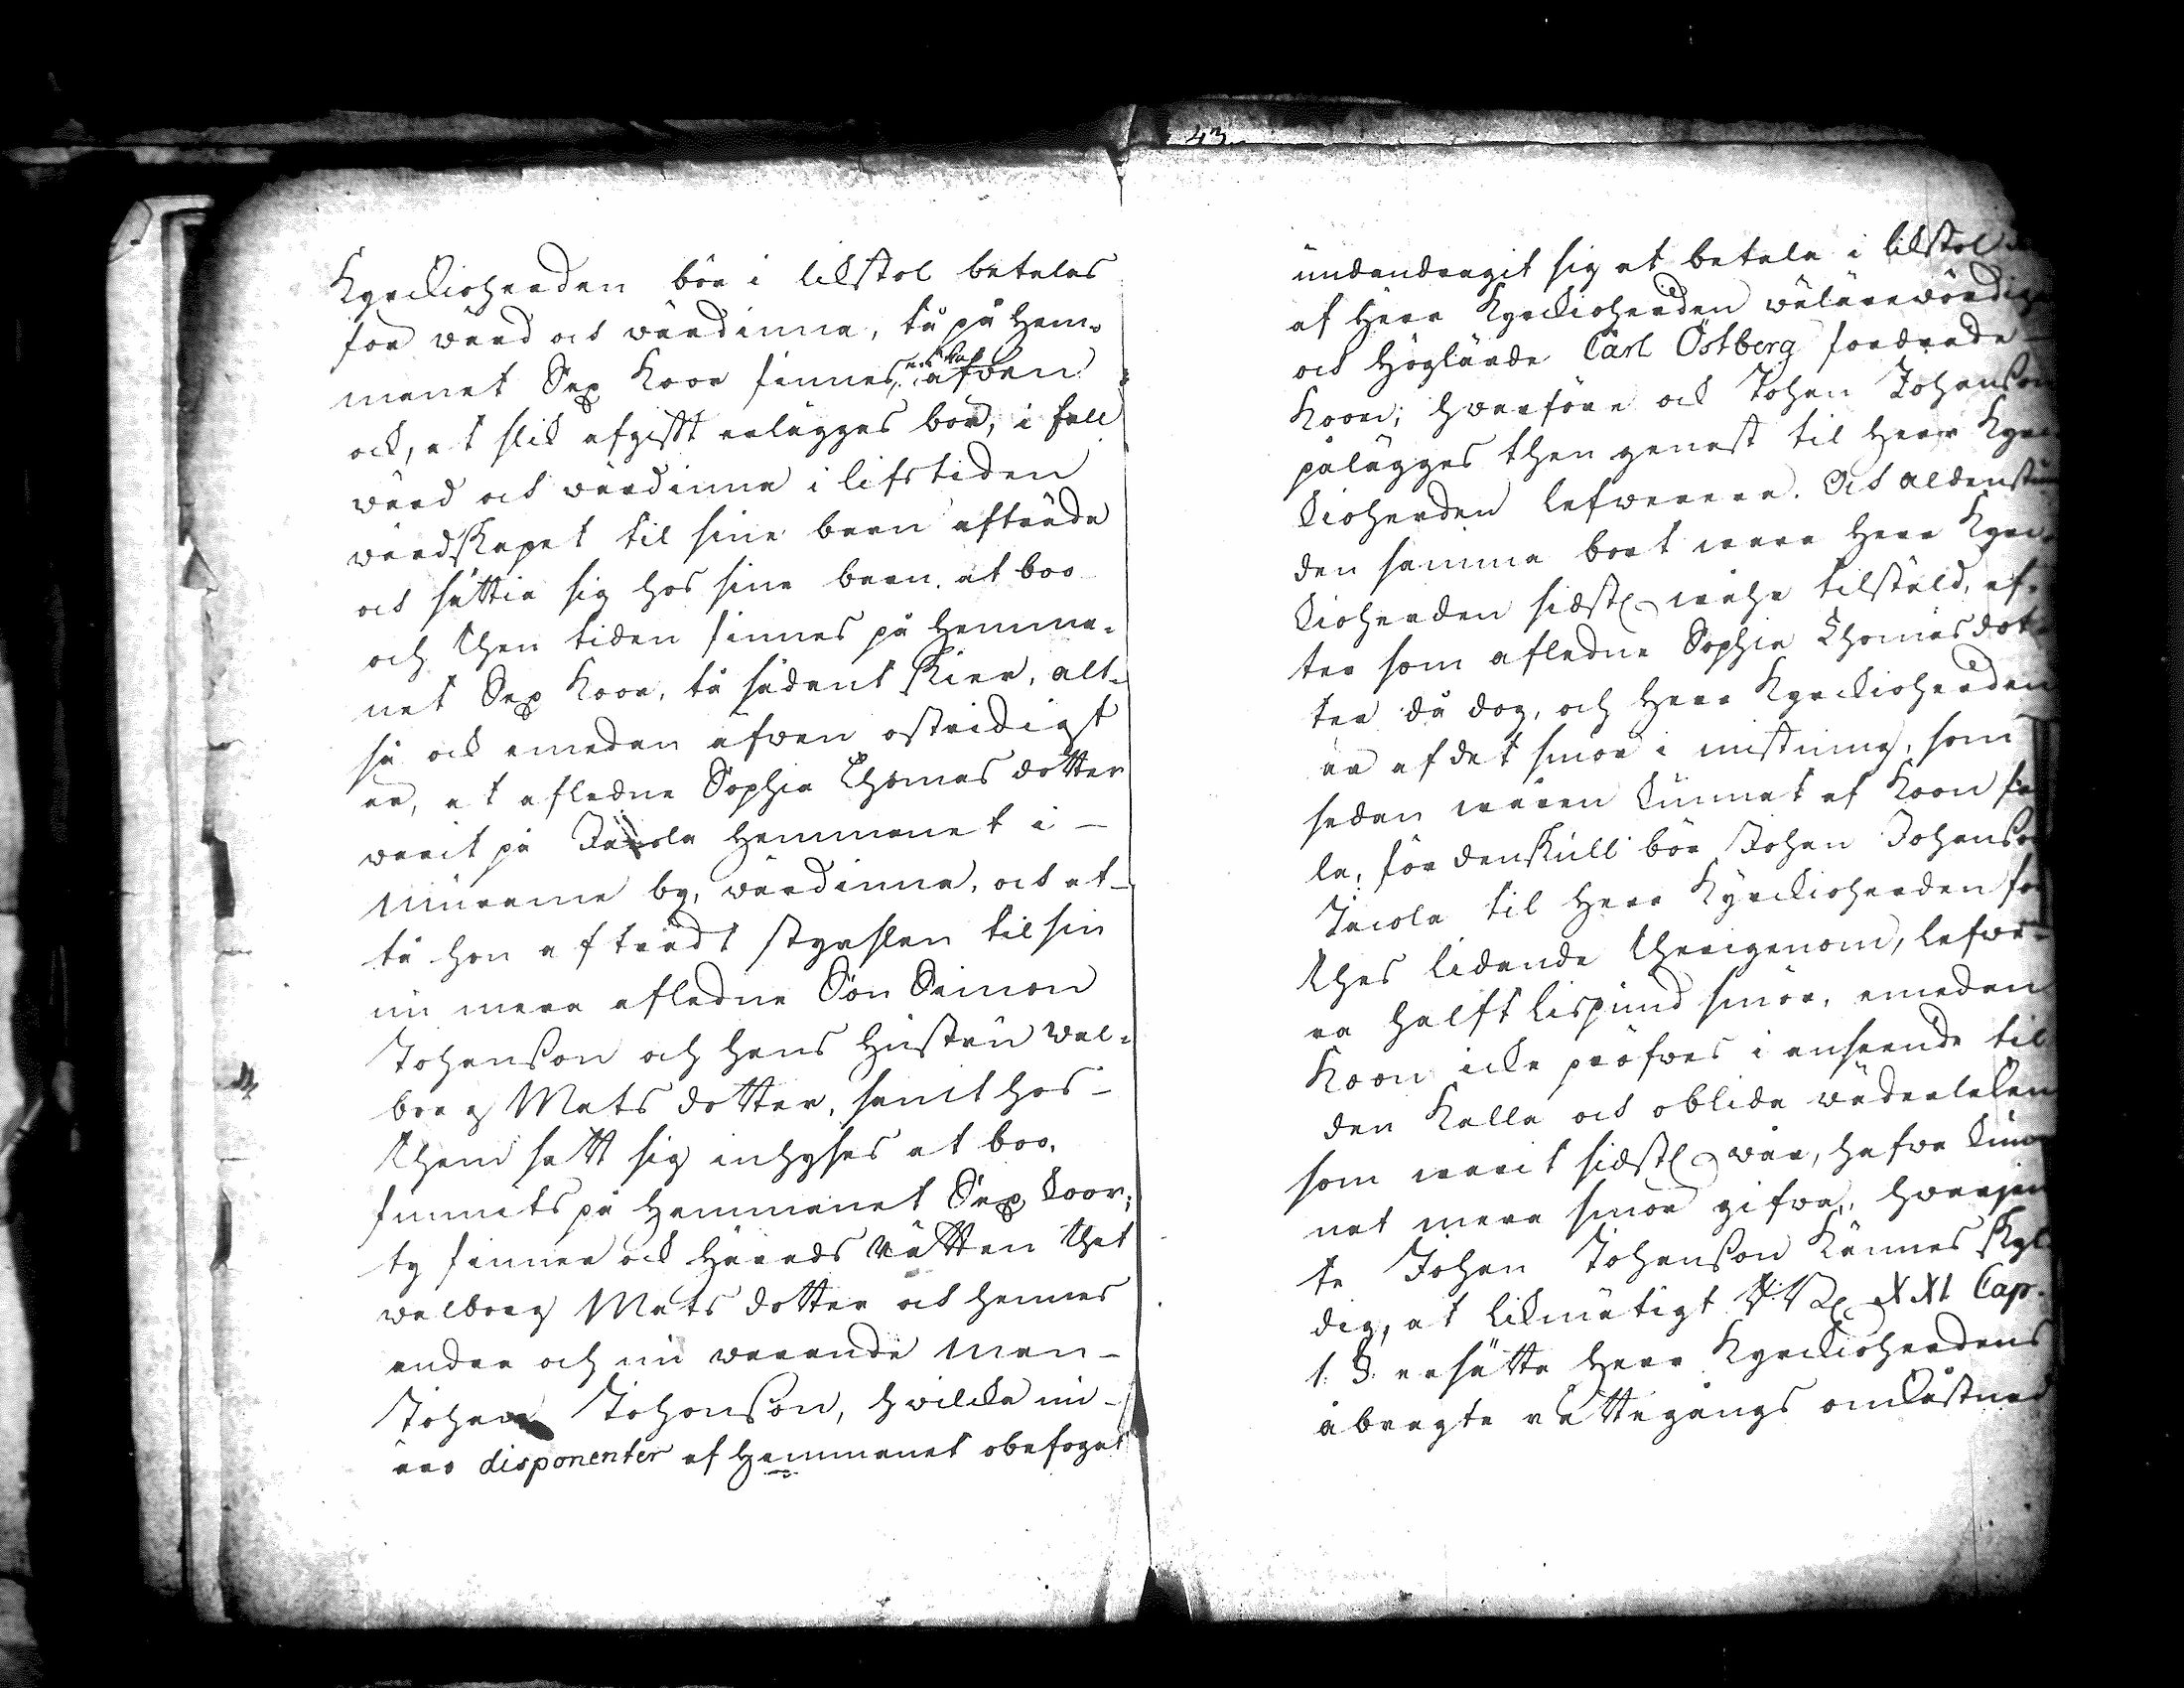 43
Kyrckioherden bör i likstol betalas
för wärd och wärdinna, tå på Hem¬
manet Sex Koor finnes, äfwen
ock, at slik afgift erlägges bör, i fall
wärd och wärdinna i lifstiden
wärdskapet til sine barn afträda
och sättia sig hos sine barn at boo
och then tiden finnes på Hemma¬
net Sex Koor, tå sådant skier, alt¬
så ock emedan äfwen ostridigt
är, at afledne Sophia Thomas dotter
warit på Jacola Hemmanet i
by, wärdinna, och at
tå hon afträdt styrslen til sin
nu mera afledne Son Simon
Johansson och hans Hustru Wal¬
borg Mats dotter, samt hos
them satt sig inhyses at boo,
funnits på Hemmanet Sex Koor;
ty finner ock Härads Rätten thet
Walborg Mats dotter och hennes
andra och nu warande Man
Johan Johansson, hwilcka nu
äro disponenter af Hemmanet obefogat
undandragit sig at betala i likstol
af Herr Kyrckioherden wälärewördige
och Höglärde Carl Östberg fordrade
Koon; hwarföre ock Johan Johansson
pålägges then genast til Herr Kyrc¬
kioherden lefwerera. Och aldenstund
den samma bort wara Herr Kyrc¬
kioherden sidstl. tilstäld, ef¬
ter som afledne Sophia Thomasdot¬
ter då dog, och Herr Kyrckioherden
är af det smör i mistning, som
sedan waren kunnat af Koon fa
la; för denskull bör Johan Johansson
Jacola til Herr Kyrckioherden för
thes lidande therigenom, lefwe¬
ra halft Lispund smör, emedan
Koon icke pröfwas i anseende til
den Kalla och oblida wäderleken
som warit sidstl. wår, hafwa kun¬
nat mera smör gifwa, hwarjem
te Johan Johansson Kännes skyl¬
dig, at likmätigt RB XXI Cap.
1. §. ersätta Herr Kyrckioherdens
åbragte rättegångs omkåstnad